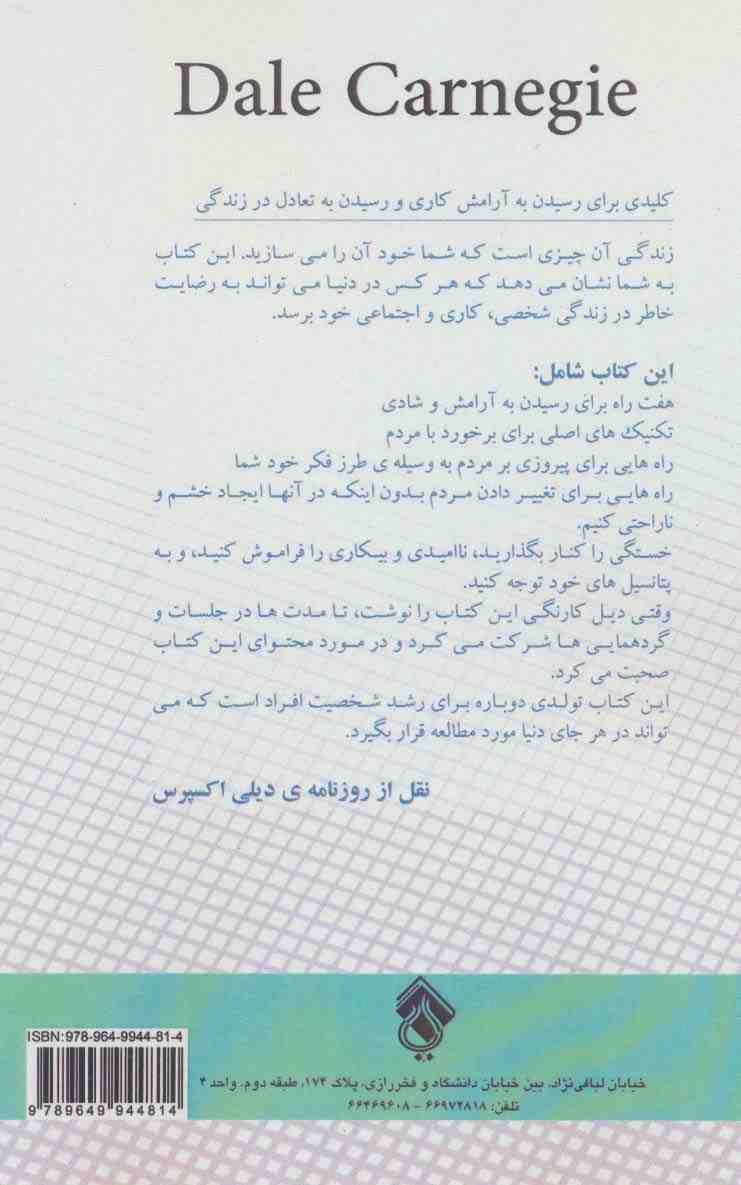 Dale Carnegie
کلیدی برای رسیدن به آرامش کاری و رسیدن به تعادل در زندگی
زندگی آن چیزی است که شما خود آن را می سازید. این کتاب
به شما نشان می دهد که هر کس در دنیا می تواند به رضایت
خاطر در زندگی شخصی، کاری و اجتماعی خود برسد.
این کتاب شامل:
هفت راه برای رسیدن به آرامش و شادی
تکنیک های اصلی برای برخورد با مردم
راه هایی برای پیروزی بر مردم به وسیله ی طرز فکر خود شما
راه هایی برای تغییر دادن مردم بدون اینکه در آنها ایجاد خشم و
ناراحتی کنیم.
خستگی را کنار بگذارید، ناامیدی و بیکاری را فراموش کنید، و به
پتانسیل های خود توجه کنید.
وقتی دیل کارنگی این کتاب را نوشت، تا مدت ها در جلسات و
گردهمایی ها شرکت می کرد و در مورد محتوای این کتاب
صحبت می کرد.
این کتاب تولدی دوباره برای رشد شخصیت افراد است که می
تواند در هر جای دنیا مورد مطالعه قرار بگیرد.
نقل از روزنامه ی دیلی اکسپرس
ISBN:978-964-9944-81-4
9 789649 944814
خیابان لبافی‌نژاد، بین خیابان دانشگاه و فخررازی، پلاک ۱۷۴، طبقه دوم، واحد ۴
تلفن: ۶۶۹۷۲۸۱۸ - ۶۶۴۶۹۶۰۸